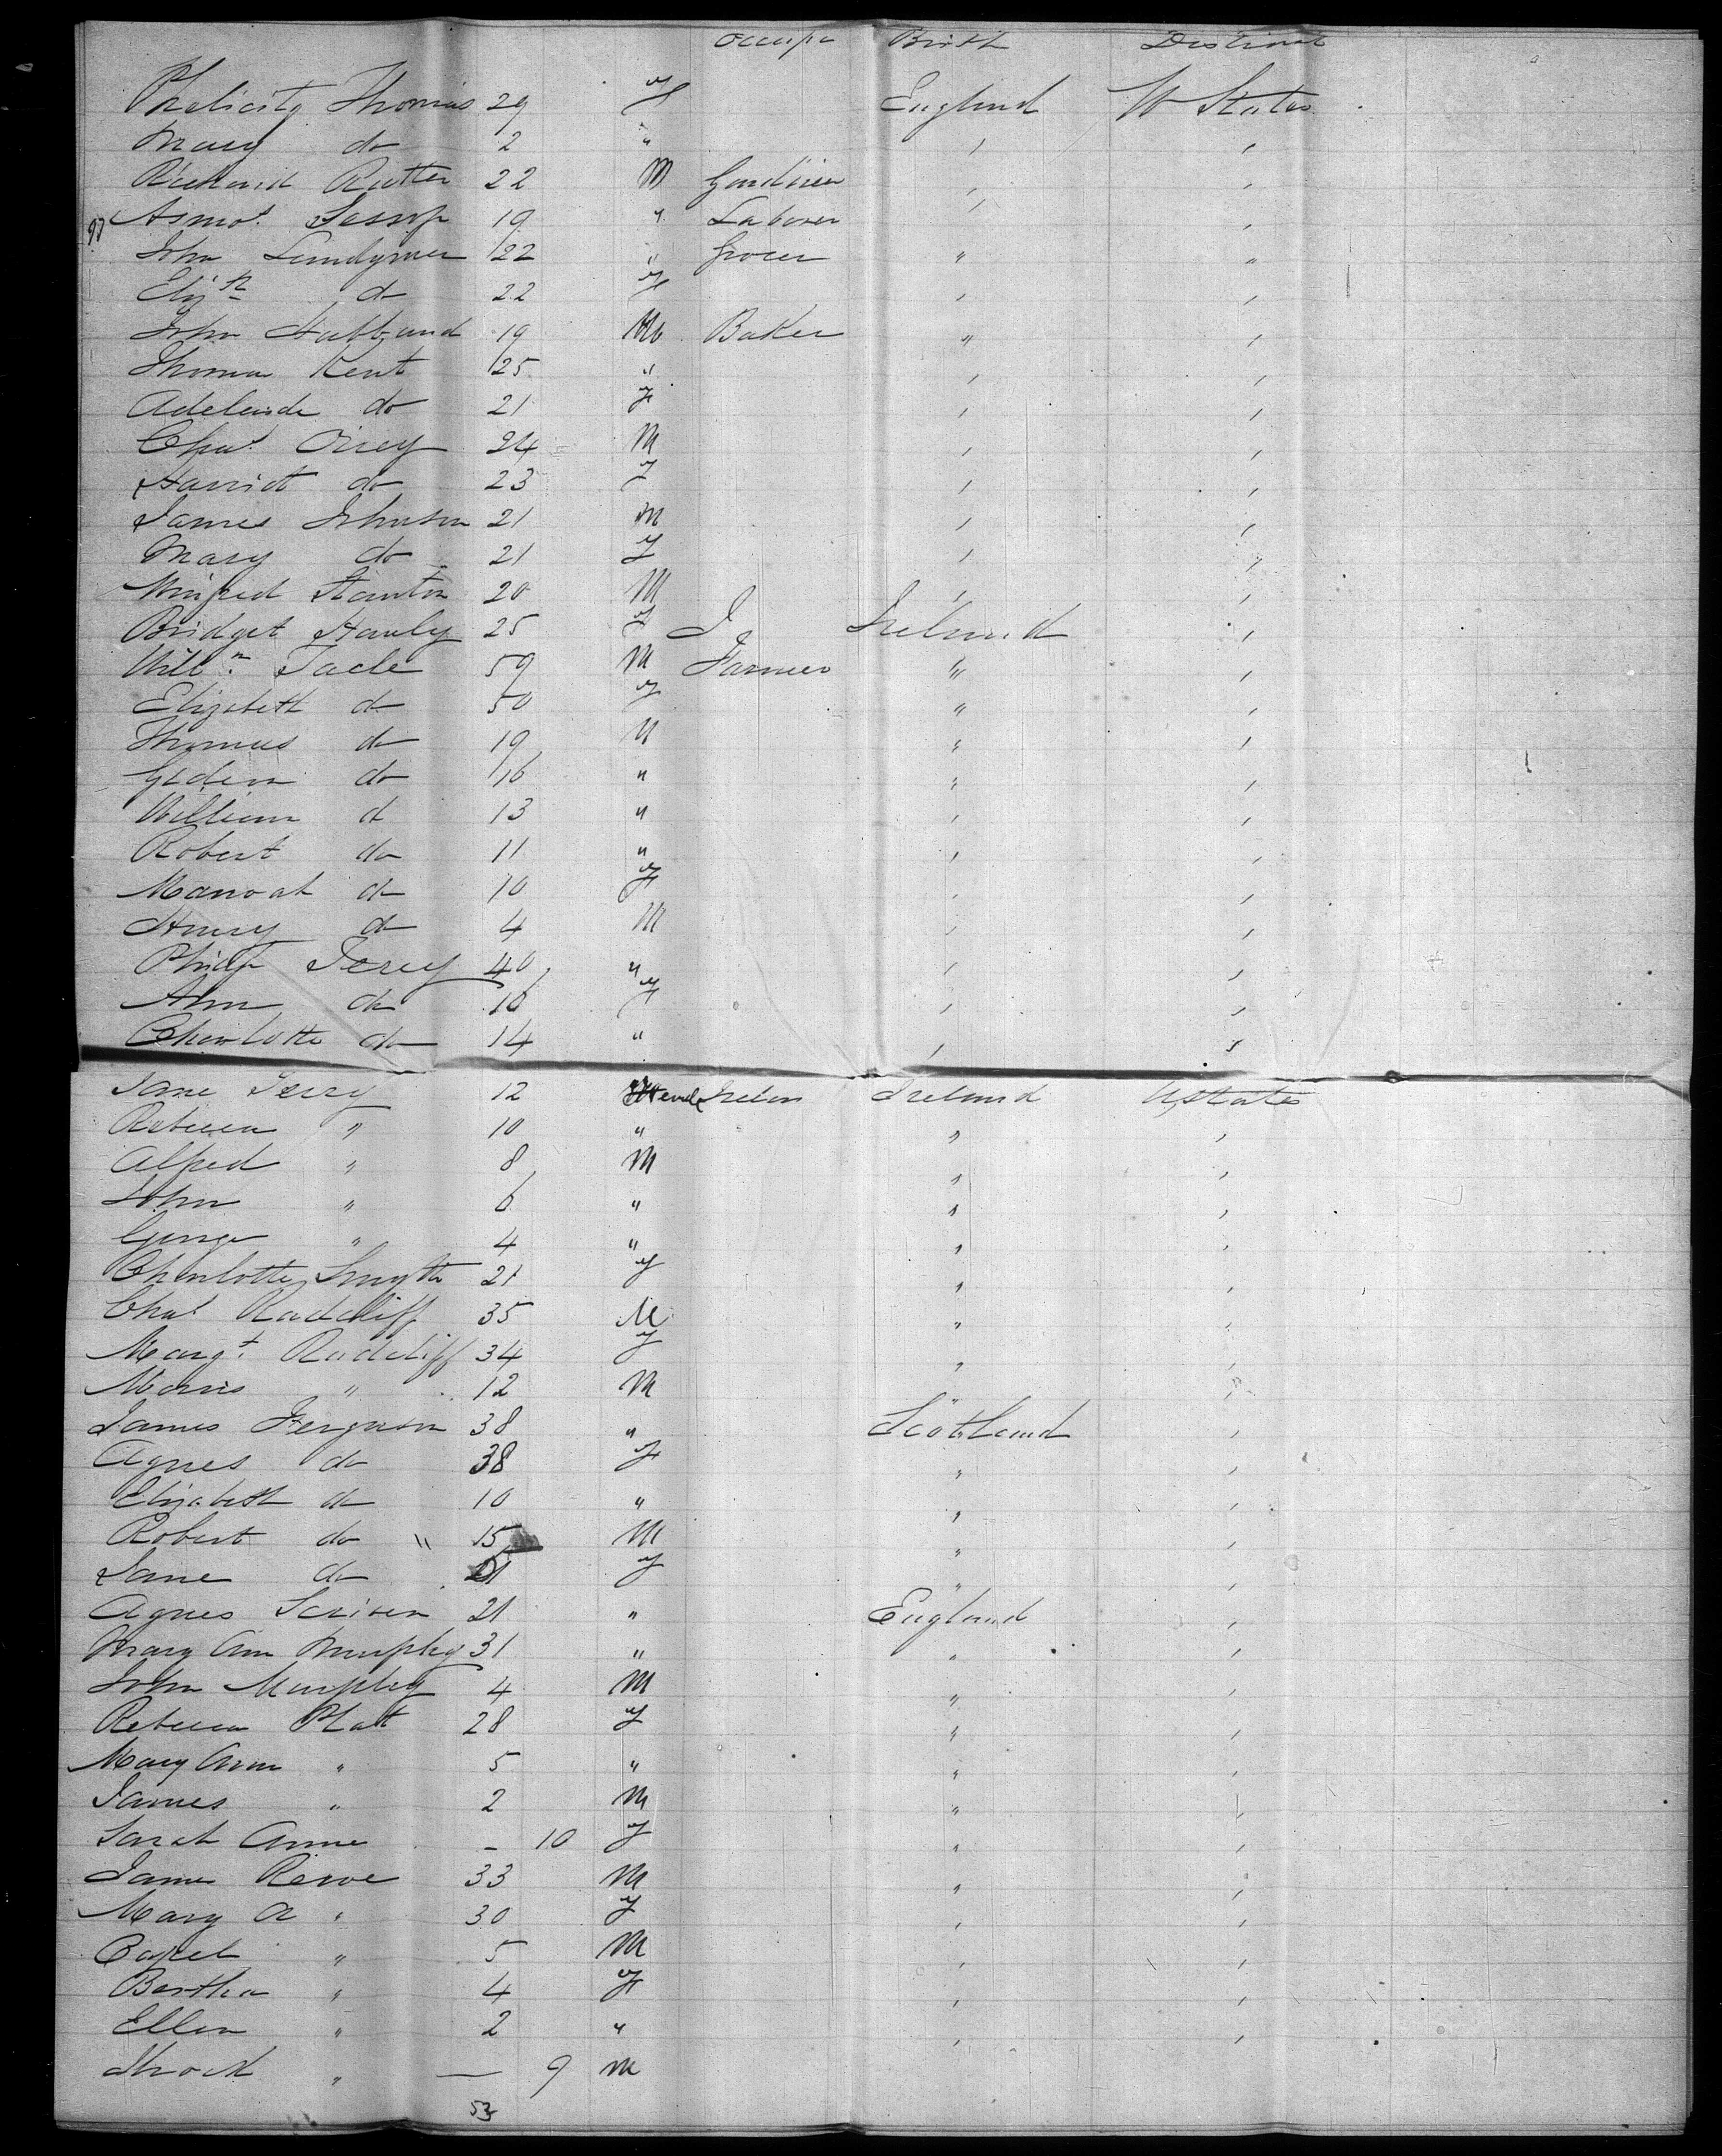 Occupa Birth Destinat
Phelicity Thomas 29 F England U States
Mary do 2 " , ,
Richard Rutter 22 M Gardiner , ,
19 " Laborer , ,
John 22 " Grocer " "
Eliz th do 22 F , ,
John Hubband 19 M Baker " ,
Thomas Kent 25 " , ,
Adelaide do 21 F , ,
Chas. 24 M , ,
Harriet do 23 F , ,
James Johnson 21 M , ,
Mary do 21 F , "
Winfred Stanton 20 M , ,
Bridget Hanly 25 F Ireland ,
Will m. 59 M Farmer " ,
Elizabeth do 50 F " ,
Thomas do 19 M " ,
do 16 " " ,
William d 13 " , ,
Robert do 11 " , ,
do 10 F , ,
Henry do 4 M , ,
Philip 40 " , ,
Ann do 16 F , ,
Charlotte do 14 " , ,
Jane Terry 12 Ireland U States
Rebecca " 10 " " ,
Alfred " 8 M " ,
John " 6 " " ,
George " 4 " " ,
Charlotte Smyth 21 F " ,
Chas Radcliff 35 M " ,
Marg t. Radcliff 34 F " ,
Morris " 12 M " ,
James Ferguson 38 " Scotland ,
Agnes do 38 F " ,
Elizabeth do 10 " " ,
Robert do " 15 M " ,
Jane do F " ,
Agnes Scriven 21 " England ,
Mary Ann Murphy 31 " " ,
John Murphy 4 M " ,
Rebecca Platt 28 F " ,
Mary Ann " 5 " " ,
James " 2 M " ,
Sarah Anne - 10 F " ,
James Rewe 33 M " ,
Mary A " 30 F , ,
" 5 M , ,
Bertha " 4 F , ,
Ellen " 2 " , ,
" — 9 M
53